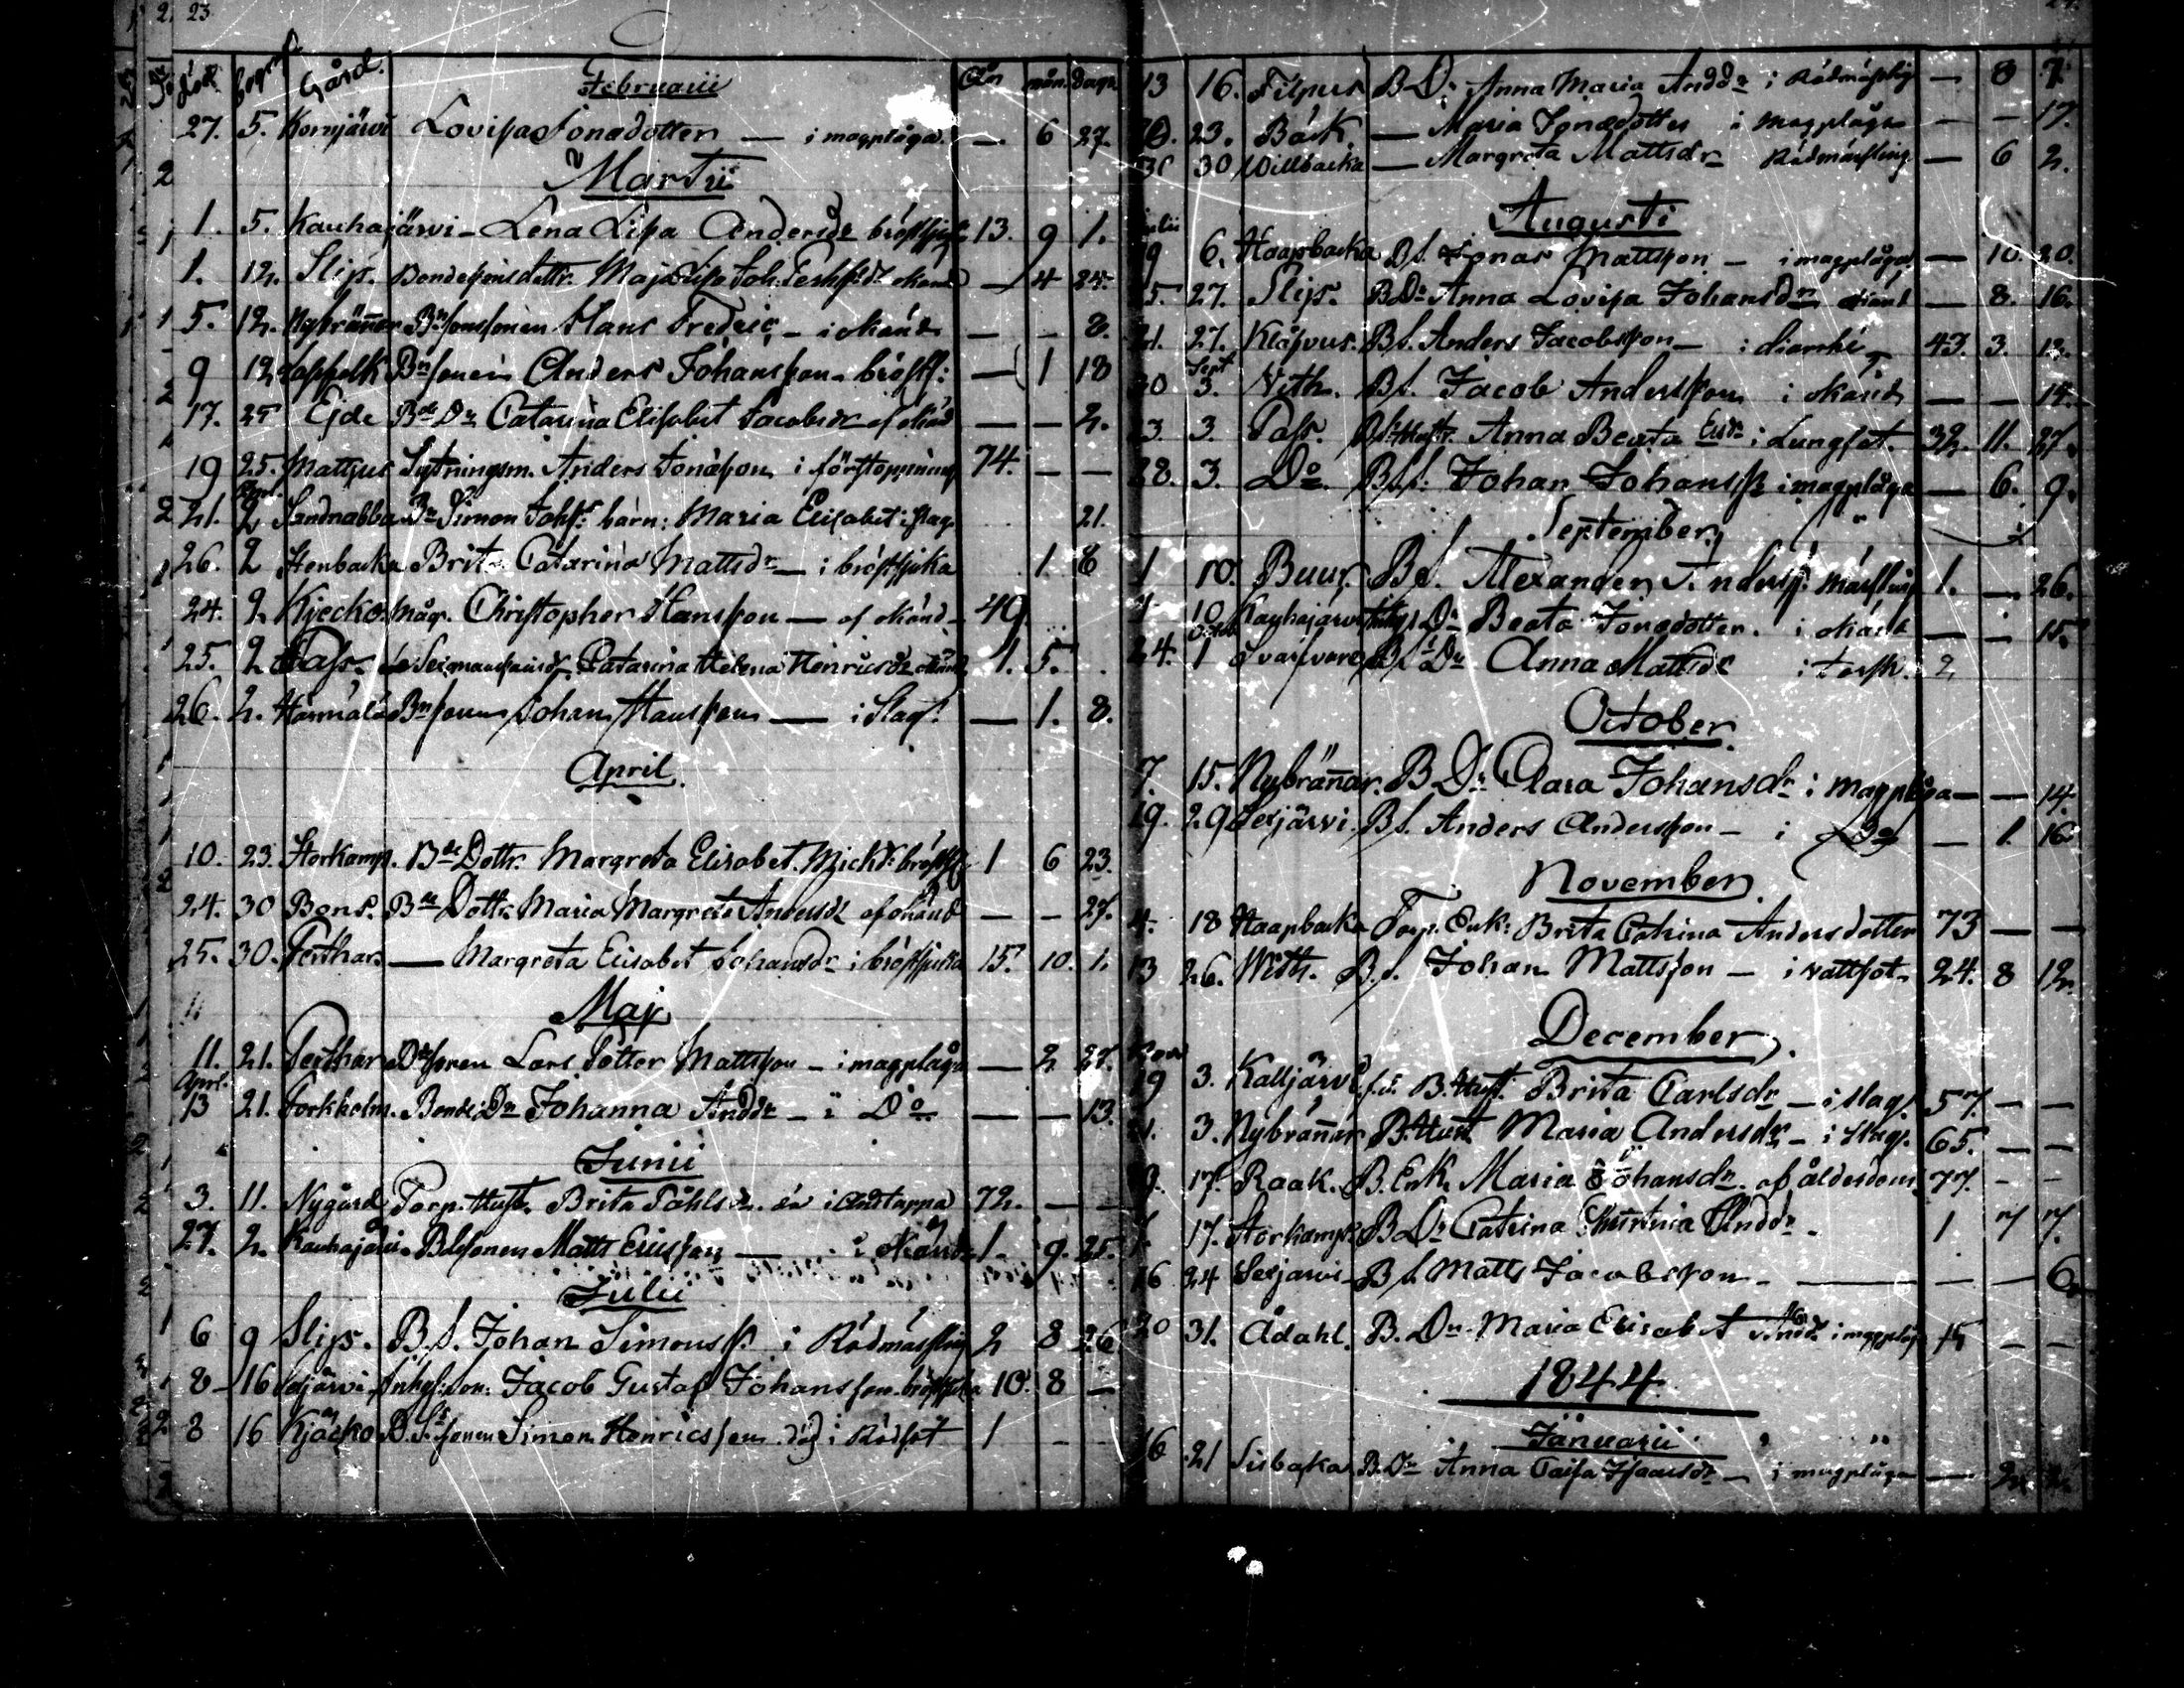 23
Död Begr. Gård. Februarii År mån. Dagar
27. 5. Kornjärvi Lovisa Jonædotter — i magplåga — 6 27.
Martii
1. 5. Kauhajärvi – Lena Lisa Andersdr bröstsjuk 13. 9 1.
1. 12. Slip. Bondesonsdottr. Maja Lisa Joh: okänd — 4 24.
5. 12. Nybrännar Bn sonsonen Hans Fredric – i okänd — — 8.
9 12 Bn sonen Anders Johansson bröstsj: — 1 18
17. 25 Ejde Bde Dr Catarina Elisabet Jacobsdr af okänd — — 2.
19 25. Mattjus Sytningsm. Anders Jonæson i förstoppning 74. — —
21. 2 Sandnabba Bn Simon Johs: barn: Maria Elisabet i slag 21.
26. 2 Stenbacka Brita Catarina Mattsdr — i bröstsjuka 1. 8
24. 2. Kjecko. Måg. Christopher Hansson — af okänd – 49.
25. 2 Pass. Catarina Helena Henricsdr okänd 1. 5.
26. 2. Härmälä Bn sonen Johan Hansson — i Slag. — 1. 8.
April.
10. 23. Storkamp. Bde Dottr. Margreta Elisabet Michsdr: bröstsj 1 6 23.
24. 30 Bons. Bde Dottr Maria Margreta Andersdr af okänd — – 27.
25. 30. Perthar. — Margreta Elisabet Johansdr i bröstsjuka 15. 10. 1.
Maj
11. 21. Perthar Bdesonen Lars Petter Mattsson – i magplåga — 2 27.
April.
13 21. Forkholm. Bonde: Dr Johanna Anddr – i Do — — 13.
Junii
3. 11. Nygård Torp. Hustr. Brita Påhlsdr. i andtäppa 72. — —
27. 2. Kauhajärvi Bdsonen Matts Ericsson — i okänd 1. 9. 25.
Julii
6 9 Slip. B. S. Johan Simonss. i Rödmässling 2 8 26
8 – 16 Lesjärvi Jacob Gustaf Johansson bröstsjuka 10. 8 —
8 16 Kjäcko B. S: sonen Simon Henricsson död i Rödsot 1 –
13 16. Filpus B D: Anna Maria Anddr i Rödmässling — 8 7.
23. Bäck. — Maria Jonædotter i Magplåga — — 17.
30 Willbacka — Margreta Mattsdr Rödmässling — 6 2.
Augusti
Julii
9 6. Haapbacka B S. Jonas Mattsson – i magplåga — 10. 20.
15. 27. Slip. B Dr Anna Lovisa Johansdr okänd — 8. 16.
21. 27. Klåpus. B S. Anders Jacobsson — i diarrhé 43. 3. 12.
Sept
20 3. With. B S. Jacob Andersson i okänd — — 14.
23. 3. Pass. Hustr. Anna Beata Ersdr i Lungsot. 32. 11. 27.
28. 3. Do. B S S: Johan Johanss i magplåga — 6. 9.
September
1 10. Buur. B S. Alexander Anderss. mässling 1. — 26.
7 10 Kauhajärvi Dr Beata Jonædotter. i okänd — — 15.
Octob
24. 1 Svartvare B S: Dr Anna Mattsdr i torsk. 2
October
7. 15. Nybrännar. B. Dr Clara Johansdr i magplåga — — 14.
19. 29 Lesjärvi. B S. Anders Andersson – i Do — 1. 16
November
4. 18 Haapbacka Torp. Enk: Brita Catrina Andersdotter 73 — —
13 26. Witt. B. S. Johan Mattsson — i vattsot 24. 8 12.
December.
Nov
19 3. Kalljärvi f.d. B. Hust. Brita Carlsdr – i slag. 57. — —
21. 3. Nybrännar B. Hust. Maria Andersdr – i slag. 65. — —
9. 17. Raak. B. Enk. Maria Johansdr. af ålderdom 77. – –
7. 17. Storkamp. B Dr Catrina Christina Anddr – 1 7 7.
16 24 Lesjärvi B S Matts Jacobsson. — — — 6.
20 31. Ådahl. B. Dr Maria Elisabet Andr. i magplåg 15 – –
1844.
Januarii
16 21 Sisbacka B. Dr Anna Caisa Isaacsdr — i magplåga — 2.